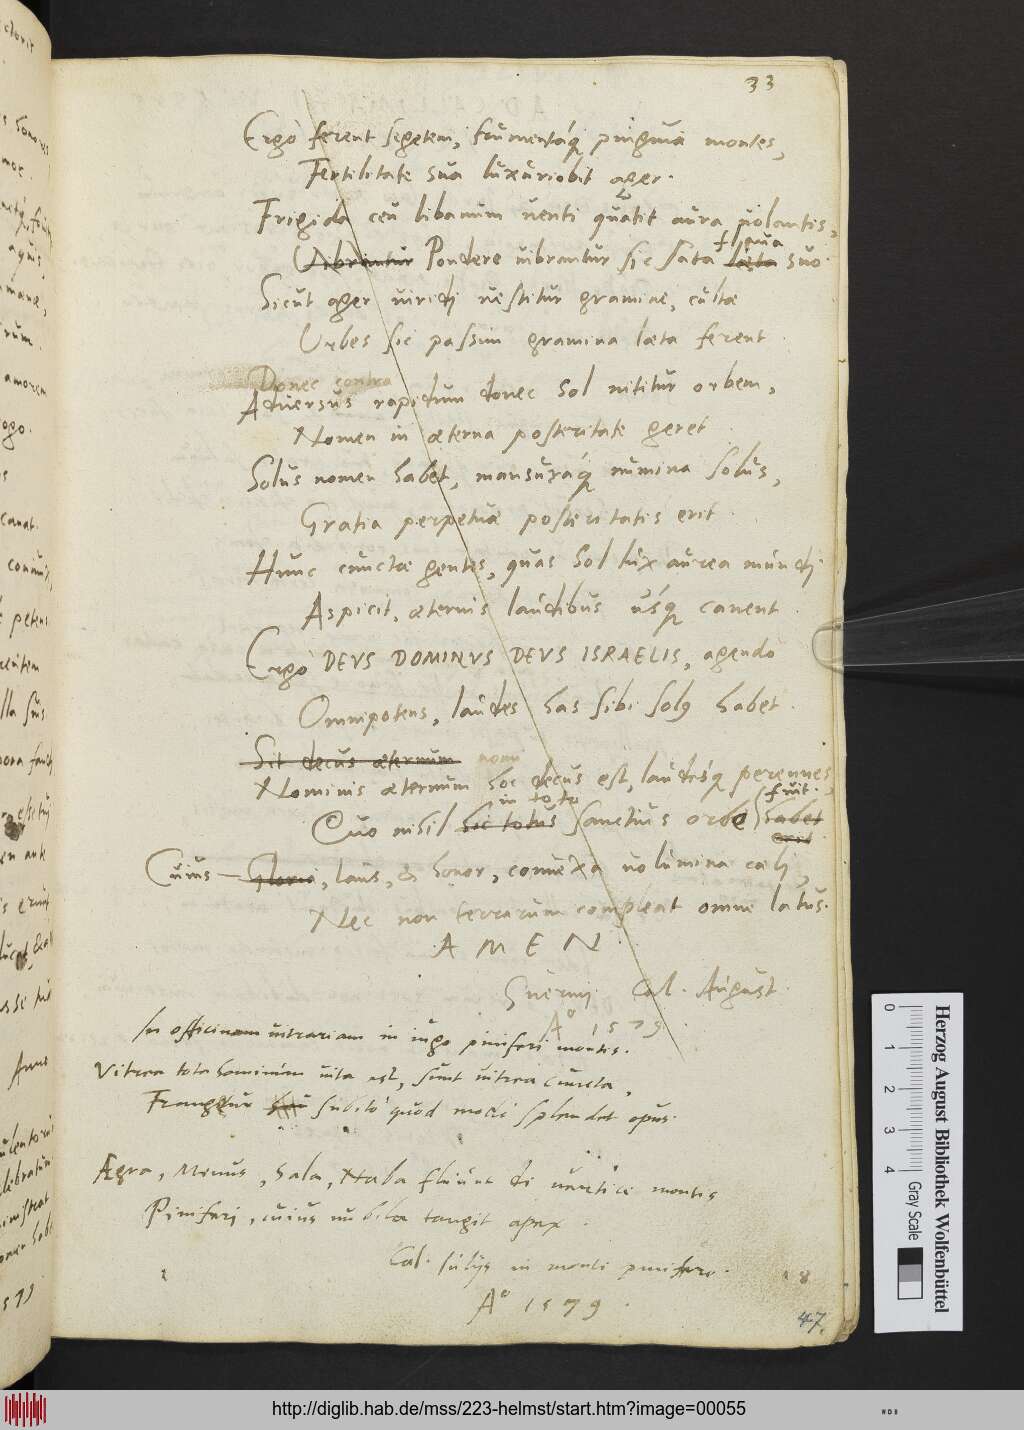 33
Ergò ferent segetem, frumentaq́ pinguia montes,
Fertilitate sua luxuriabit ager.
Frigida ceu libanum uenti quatit aura uolantis,
flaua
Vibrantur Pondere uibrantur sic sata læta suo.
Sicut ager uiridj uestitur gramine, cultæ
Vrbes sic passim gramina læta ferent.
Donec contra
Aduersus rapidum donec Sol nititur orbem,
Nomen in æterna posteritate geret.
Solus nomen habet, mansuraq́ numina solus,
Gratia perpetuæ posteritatis erit.
Hunc cunctæ gentes, quas Sol lux aurea mundj
Aspicit, æternis laudibus usq́ canent.
Ergò DEVS DOMINVS DEVS ISRAELIS, agendo
Omnipotens, laudes has sibi solꝰ habet.
Sit decus æternum nomi
Nominis æternum hoc decus est, laudesq́ perennes,
in toto fuit.
Quo nihil hic totus sanctius orbe habet
erit
Cuius — Gloria, laus, & honor, conuexa uolumina cælj,
Nec non terrarum compleat omne latus.
A M E N.
Cal. August.
Aº 1579
In officinam uitrariam in iugo piniferi montis.
Vitrea tota hominum uita est, sunt uitrea cuncta,
Frangitur subitò quod modò splendet opus.
Ægra, Menus, Sala, Naba fluunt de uertice montis
Piniferi, cuius nubila tangit apex.
Cal. Iulijs in monte pinifero.
Aº 1579.
47.
0 1 2 3 4
Gray Scale
Herzog August Bibliothek Wolfenbüttel
http://diglib.hab.de/mss/223-helmst/start.htm?image=00055